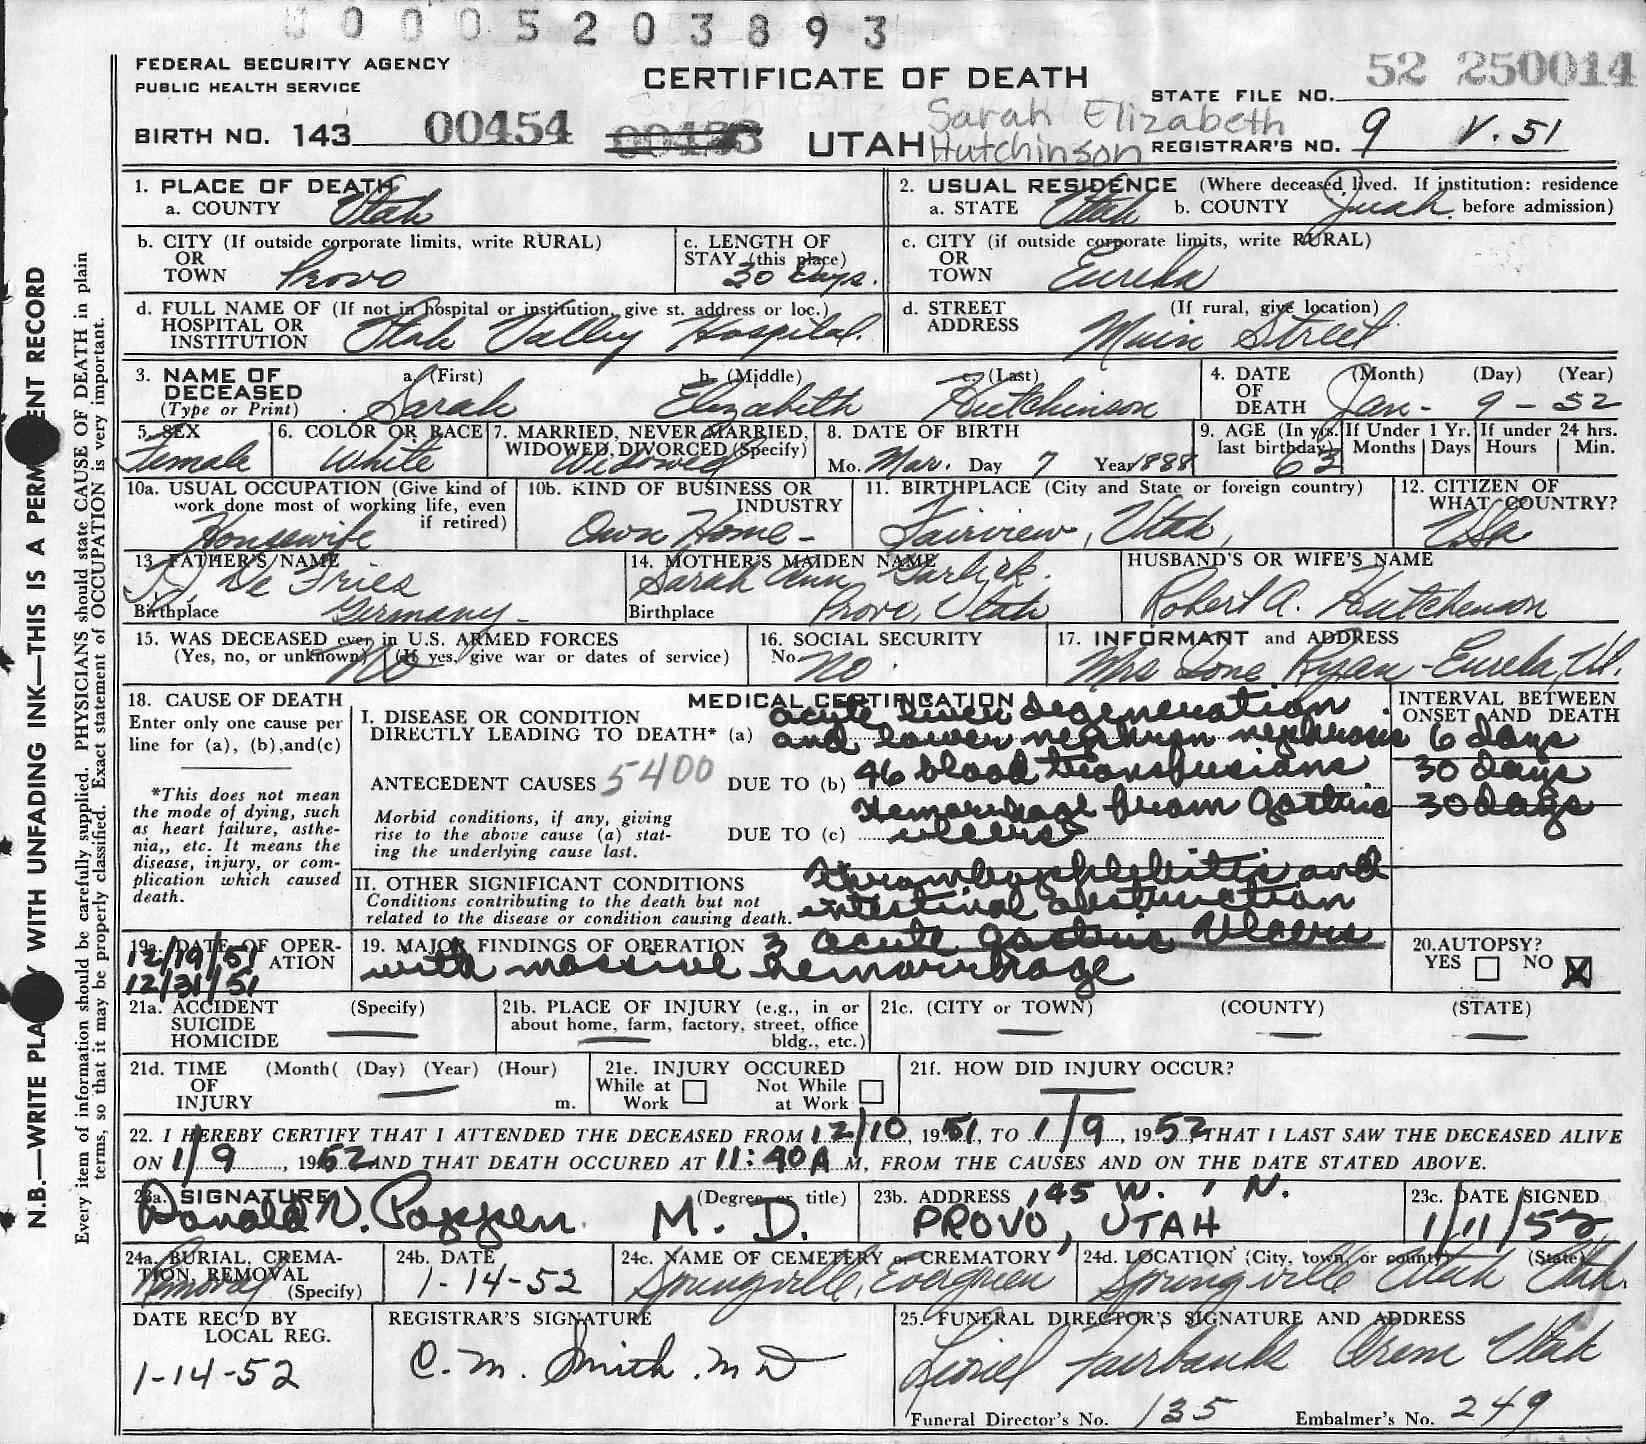 0 0 0 5 2 0 3 8 9 3
FEDERAL SECURITY AGENCY
PUBLIC HEALTH SERVICE
CERTIFICATE OF DEATH
52 250014
STATE FILE NO.
BIRTH NO. 143 00454
UTAH
Sarah Elizabeth
Hutchinson
REGISTRAR'S NO. 9 V. 51
1. PLACE OF DEATH
a. COUNTY Utah
2. USUAL RESIDENCE (Where deceased lived. If institution: residence
a. STATE Utah b. COUNTY Juab before admission)
b. CITY (If outside corporate limits, write RURAL)
OR
TOWN Provo
c. LENGTH OF
STAY (this place)
30 Days.
c. CITY (if outside corporate limits, write RURAL)
OR
TOWN Eureka
d. FULL NAME OF (If not in hospital or institution, give st. address or loc.)
HOSPITAL OR
INSTITUTION Utah Valley Hospital.
d. STREET (If rural, give location)
ADDRESS Main Street
3. NAME OF
DECEASED
(Type or Print)
a. (First) b. (Middle) c. (Last)
Sarah Elizabeth Hutchinson
4. DATE
OF
DEATH
(Month) (Day) (Year)
Jan - 9 - 52
5. SEX
Female
6. COLOR OR RACE
White
7. MARRIED, NEVER MARRIED,
WIDOWED, DIVORCED (Specify)
Widowed
8. DATE OF BIRTH
Mo. Mar. Day 7 Year 1888
9. AGE (In yrs.
last birthday)
63
If Under 1 Yr.
Months Days
If under 24 hrs.
Hours Min.
10a. USUAL OCCUPATION (Give kind of
work done most of working life, even
if retired)
Housewife
10b. KIND OF BUSINESS OR
INDUSTRY
Own Home -
11. BIRTHPLACE (City and State or foreign country)
Fairview, Utah,
12. CITIZEN OF
WHAT COUNTRY?
USA
13. FATHER'S NAME
De Fries
Birthplace Germany -
14. MOTHER'S MAIDEN NAME
Sarah Ann Garlick.
Birthplace Provo, Utah
HUSBAND'S OR WIFE'S NAME
Robert A. Hutchenson
15. WAS DECEASED ever in U.S. ARMED FORCES
(Yes, no, or unknown) (If yes, give war or dates of service)
No
16. SOCIAL SECURITY
No. No.
17. INFORMANT and ADDRESS
Mrs Ione Ryan - Eureka, Ut.
18. CAUSE OF DEATH
Enter only one cause per
line for (a), (b), and (c)
*This does not mean
the mode of dying, such
as heart failure, asthe-
nia,, etc. It means the
disease, injury, or com-
plication which caused
death.
MEDICAL CERTIFICATION
I. DISEASE OR CONDITION
DIRECTLY LEADING TO DEATH* (a)
acute liver degeneration
and lower nephron nephrosis
INTERVAL BETWEEN
ONSET AND DEATH
6 days
ANTECEDENT CAUSES 5400 DUE TO (b) 46 blood transfusions 30 days
Morbid conditions, if any, giving
rise to the above cause (a) stat-
ing the underlying cause last.
DUE TO (c) Hemorrhage from Gastric
ulcers
30 days
II. OTHER SIGNIFICANT CONDITIONS
Conditions contributing to the death but not
related to the disease or condition causing death.
thrombophlebitis and
intestinal obstruction
19a. DATE OF OPER-
ATION
12/19/51
12/31/51
19. MAJOR FINDINGS OF OPERATION 3 acute gastric ulcers
with massive hemorrhage
20. AUTOPSY?
YES NO X
21a. ACCIDENT (Specify)
SUICIDE
HOMICIDE
21b. PLACE OF INJURY (e.g., in or
about home, farm, factory, street, office
bldg., etc.)
21c. (CITY or TOWN) (COUNTY) (STATE)
21d. TIME (Month( (Day) (Year) (Hour)
OF
INJURY m.
21e. INJURY OCCURED
While at Not While
Work at Work
21f. HOW DID INJURY OCCUR?
22. I HEREBY CERTIFY THAT I ATTENDED THE DECEASED FROM 12/10, 1951, TO 1/9, 1952 THAT I LAST SAW THE DECEASED ALIVE
ON 1/9, 1952 AND THAT DEATH OCCURED AT 11:40A M, FROM THE CAUSES AND ON THE DATE STATED ABOVE.
23a. SIGNATURE (Degree or title)
Donald V. Poppen M. D.
23b. ADDRESS 145 W. 1 N.
PROVO, UTAH
23c. DATE SIGNED
1/11/52
24a. BURIAL, CREMA-
TION, REMOVAL
(Specify)
Removal
24b. DATE
1-14-52
24c. NAME OF CEMETERY or CREMATORY
Springville, Evergreen
24d. LOCATION (City, town, or county) (State)
Springville Utah Utah.
DATE REC'D BY
LOCAL REG.
1-14-52
REGISTRAR'S SIGNATURE
C. M. Smith. M D
25. FUNERAL DIRECTOR'S SIGNATURE AND ADDRESS
Lionel Fairbanks Orem Utah
Funeral Director's No. 135 Embalmer's No. 249
N.B.—WRITE PLA Y WITH UNFADING INK—THIS IS A PERM ENT RECORD
Every item of information should be carefully supplied. PHYSICIANS should state CAUSE OF DEATH in plain
terms, so that it may be properly classified. Exact statement of OCCUPATION is very important.